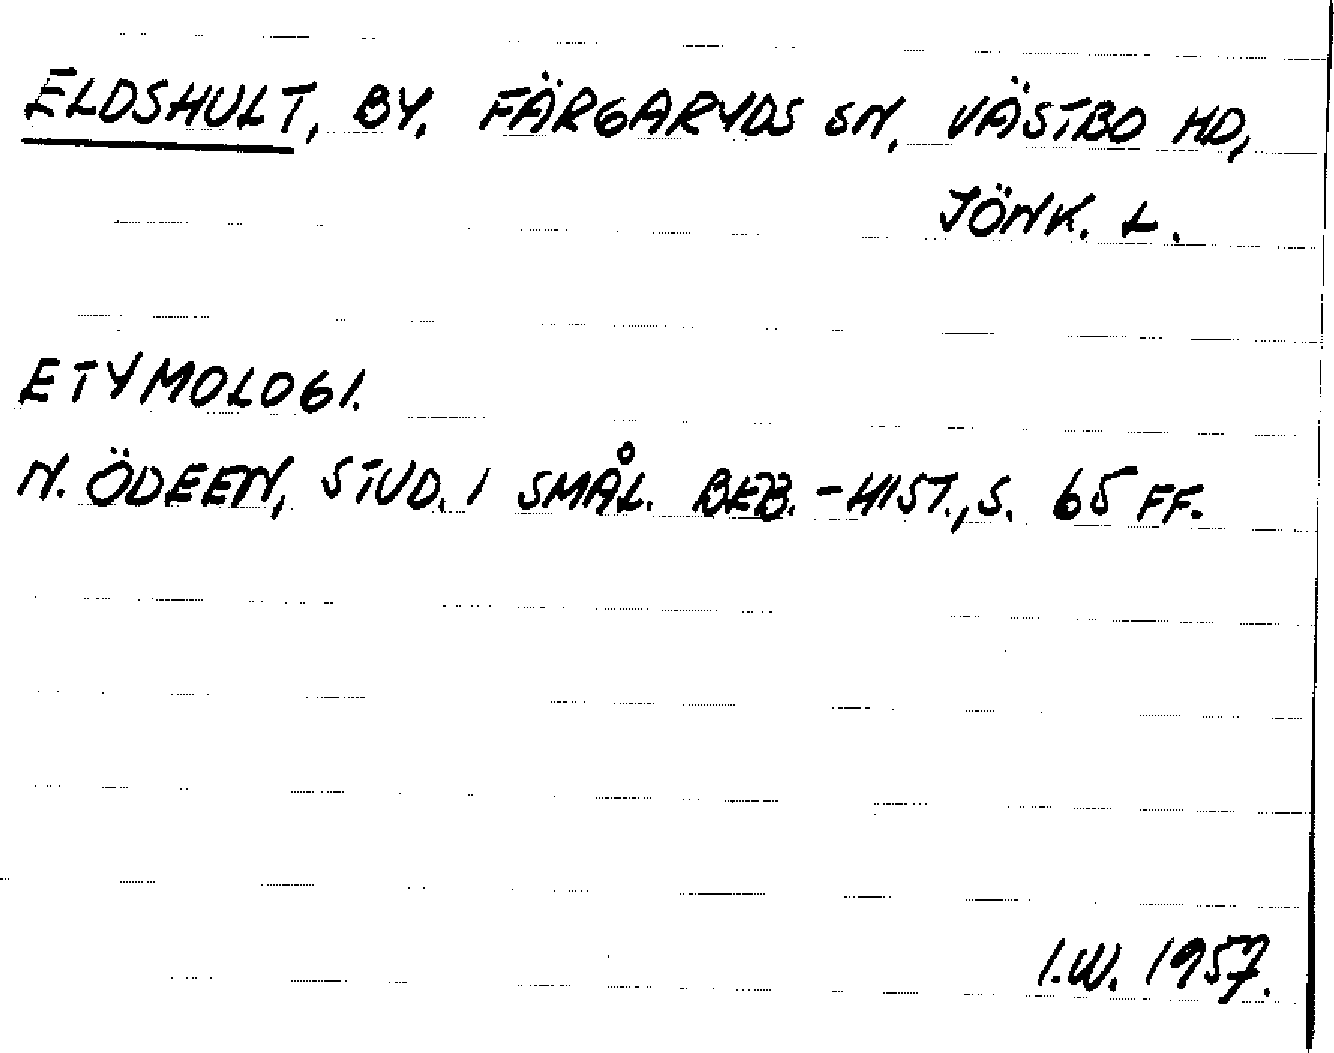 ELDSHULT, BY, FÄRGARYDS SN, VÄSTBO HD,
JÖNK. L.
ETYMOLOGI.
N. ÖDEEN, STUD. I SMÅL. BEB.-HIST., S. 65 FF.
I.W. 1957.